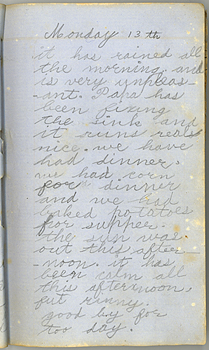 Monday 13th
it has rained all
the morning and
is very unpleas-
-ant. Papa has
been fixing
the sink and
it runs real
nice. we have
had dinner.
we had corn
for dinner
and we had
baked potatoes
for supper.
the sun was
out this after-
-noon. it has
been calm all
this afternoon.
but
good by for
too day.